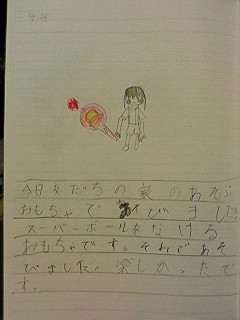 今日友だちの家のあそぶ
おもちゃであそびました。
スーパーボールをなげる
おもちゃです。それであそ
びました、楽しかったで
す。